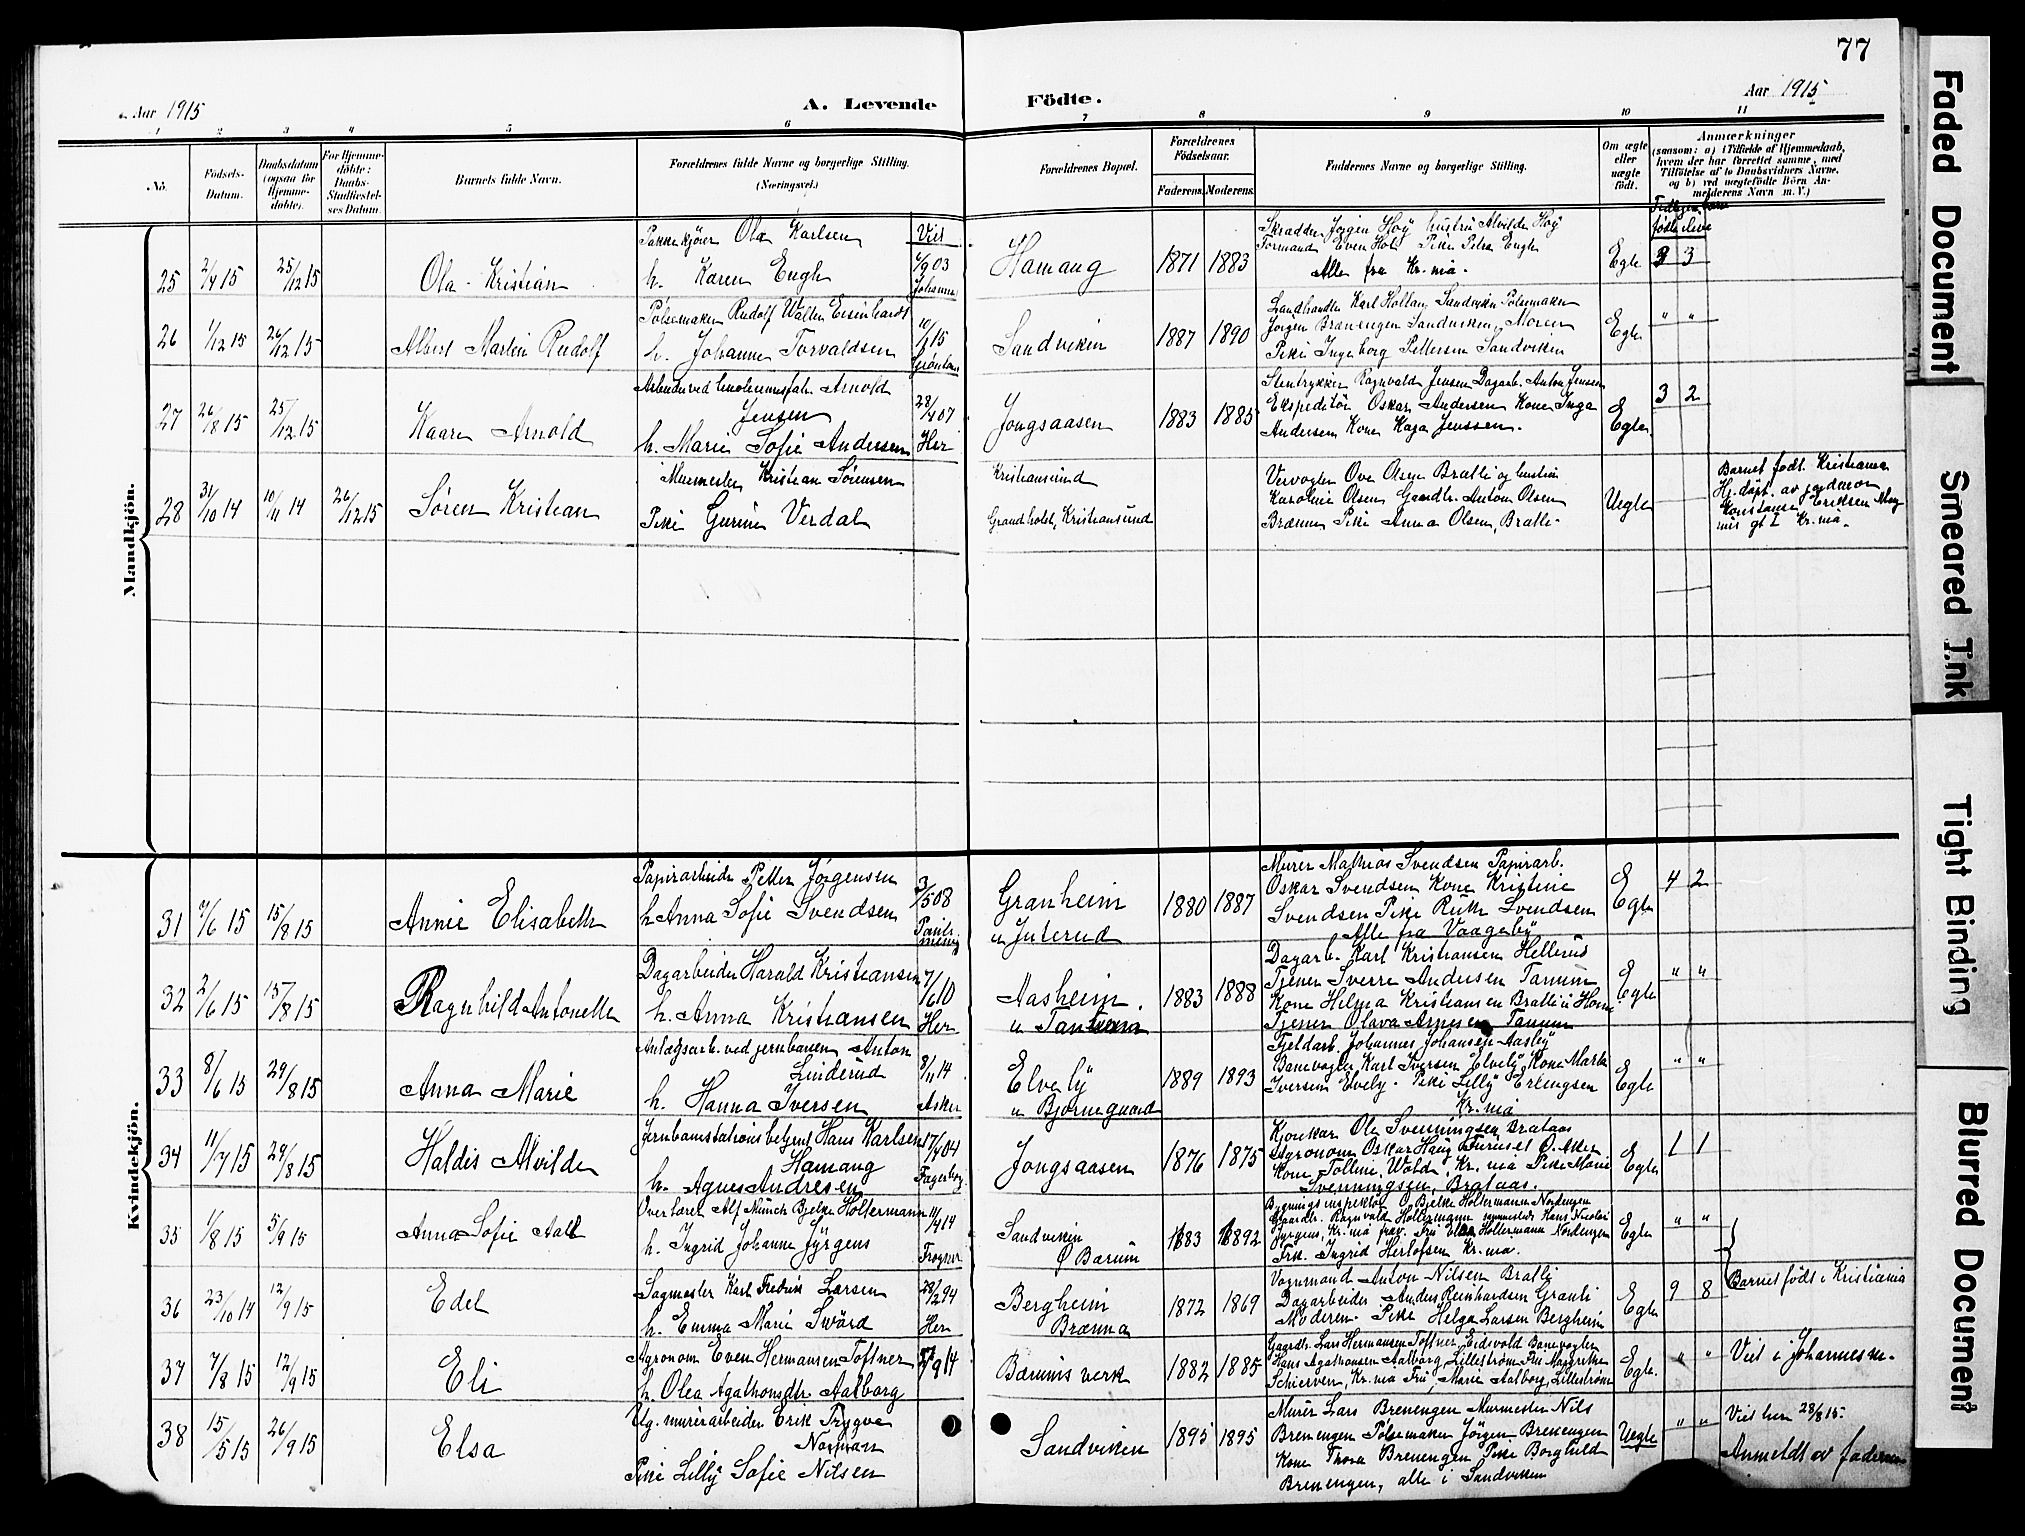 77
Aar 1915
A. Levende Födte.
Aar 1915
1 2 3 4 5 6 7 8 9 10 11
No.
Födsels-
Datum.
Daabsdatum
(ogsaa for
Hjemme-
döbte).
For Hjemme-
döbte:
Daabs-
Stadfæstel-
ses Datum.
Barnets fulde Navn.
Forældrenes fulde Navne og borgerlige Stilling.
(Næringsvei.)
Forældrenes Bopæl.
Forældrenes
Födselsaar.
Faderens. Moderens.
Faddernes Navne og borgerlige Stilling.
Om ægte
eller
uægte
födt.
Anmærkninger
(saasom: a) i Tilfælde af Hjemmedaab,
hvem der har forrettet samme, med
Tilföielse af to Daabsvidners Navne,
og b) ved uægtefödte Börn An-
melderens Navn m. V.)
Mandkjön.
25 2/4 15 25/12 15 Ola Kristian
Pakkekjører Ola Karlsen
h. Karen Engh
Viet
/9 03
Johannes
Hamang 1871 1883
Skrædder Jørgen Høy hustru Alvilde Høy
Formand Even Hole Pike Petra Engh
Alle fra Kr.nia.
Egte 3
26 1/12 15 26/12 15 Albert Martin Rudolf
Pølsemaker Rudolf Walter Eisenhardt
h. Johanne Torvaldsen
10/ 15
Sandviken 1887 1890
Landhandler Karl Hollan, Sandviken Pølsemaker
Jørgen Brænengen Sandviken, Moren
Pike Ingeborg Pettersen Sandviken
Egte " "
27 26/8 15 25/12 15 Kaare Arnold
Arnold
Jensen
h. Marie Sofie Andersen
28/4 07
Her
Jongsaasen 1883 1885
Stentrykker Ragnvald Jensen Dagarb. Anton Jensen
Ekspeditør Oskar Andersen Kone Inga
Andersen Kone Kaja Jenssen.
Egte 3 2
28 31/10 14 10/11 14 26/12 15 Søren Kristian
Murmester Kristian Sørensen
Pike Gurine Verdal
Kristiansund
Grand hotel, Kristiansund
Vervogter Ove Olsen Bratli og hustru
Karoline Olsen Gaardbr. Anton Olsen
Brænna Pike Anna Olsen, Bratli
Uegte
Barnet født i Kristiania
Hj. døpt av jordmor
Konstanse Eriksen
gt 2 Kr.nia.
Kvindekjön.
31 7/6 15 15/8 15 Annie Elisabeth
Papirarbeider Petter Jørgensen
h Anna Sofie Svendsen
3/5 08
Granheim
u Juterud
1880 1887
Murer Mathias Svendsen Papirarb.
Oskar Svendsen Kone Kristine
Svendsen Pike Ruth Svendsen
Alle fra Vaageby
Egte 4 2
32 2/6 15 15/8 15 Ragnhild Antonette
Dagarbeider Harald Kristiansen
h. Anna Kristiansen
7/6 10
Her
Aasheim
u Tanum
1883 1888
Dagarb. Karl Kristiansen Hellerud
Tjener Sverre Andersen Tanum
Kone Helma Kristiansen Bratli i Homi
Tjener Olava Tanum
Egte " "
33 8/6 15 29/8 15 Anna Marie
Anlægsarb. ved jernbanen Anton
Linderud
h. Hanna Iversen
8/11 14
Asker
Elvely
u Bjørnegaard
1889 1893
Fjeldarb. Johannes Johansen Aasly
Banevogter Karl Iversen Elvely Kone Marta
Iversen Elvely. Pike Lilly Erlingsen
Kr.nia
Egte " "
34 11/7 15 29/8 15 Haldis Alvilde
Jernbanestationsbetjent Hans Karlsen
Hamang
h. Agnes Andresen
17/4 04
Fagerborg
Jongsaasen 1876 1875
Kjøukar Ole Svenningsen Brataas
Agronom Oskar Haug Furuset Ø. Aker
Kone Tolline Wold, Kr.nia Pike Marie
Svenningsen Brataas.
Egte 1 1
35 1/8 15 5/9 15 Anna Sofie Aall
Overlærer Alf Münch Bjelke Holtermann
h. Ingrid Johanne Jÿrgens
11/4 14
Frogner
Sandviken
Ø Bærum
1883 1892
Bygningsinspektør O Bjelke Holtermann Nordengen
Gaardbr. Ragnvald Holtermann sammesteds Hans Nicolai
Jyrgens, Kr.nia Fru Holtermann Nordengen
Frk. Ingrid Herlofsen Kr.nia.
Egte " "
36 23/10 14 12/9 15 Edel
Sagmester Karl Fredrik Larsen
h. Emma Marie Swärd
28/12 94
Her
Bergheim
Brænna
1872 1869
Vognmand Anton Nilsen Bratli
Dagarbeider Anders Reinhardsen Granli
Moderen. Pike Helga Larsen Bergheim
Egte 9 8
Barnet født i Kristiania
37 7/8 15 12/9 15 Eli
Agronom Even Hermansen Toftner
h. Olea Agathonsdtr Aalborg
/9 14
Bærums verk 1882 1885
Gaardbr. Lars Hermansen Toftner, Eidsvold Banevogter
Hans Agathonsen Aalborg, Lillestrøm Fru Margrethe
Schierven, Kr.nia Fru Marie Aalborg, Lillestrøm
Egte. " "
Viet i Johannesm.
38 15/5 15 26/9 15 Elsa
Ug. murerarbeider Erik Trygve
Norman
Pike Lilly Sofie Nilsen
Sandviken 1895 1895
Murer Lars Brenengen Murmester Nils
Brenengen Pølsemaker Jørgen Brenengen
Kone Thora Brenengen Pike Borghild
Brenengen, alle i Sandviken
Uegte " "
Viet her 28/8 15.
Anmeldt av faderen
Faded Document
Smeared Ink
Tight Binding
Blurred Document